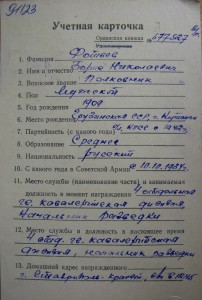 91123
Учетная карточка
Орденская книжка
Удостоверение
577527
1. Фамилия Фойнов
2. Имя и отчество Борис Николаевич
3. Воинское звание Полковник
4. Пол мужской
5. Год рождения 1909
6. Место рождения Грузинская ССР, г. Кутаиси
7. Партийность (с какого года) чл. КПСС с
8. Образование Среднее
9. Национальность русский
10. С какого года в Советской Армии с 10.10.
11. Место службы (наименование части) и занимаемая
должность в момент награждения 4 отдельная
гв. кавалерийская дивизия,
начальник разведки
12. Место службы и должность в настоящее время
4 отд. гв. кавалерийская
дивизия, начальник разведки
13. Домашний адрес награжденного
г. Ставрополь-краевой,